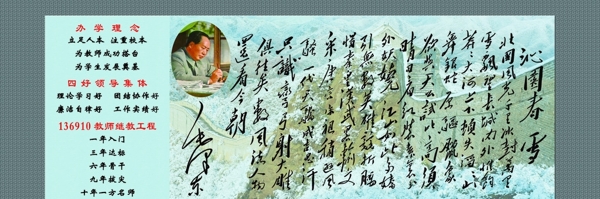 办学理念
立足人本 注重校本
为教师成功搭台
为学生发展奠基
四好领导集体
理论学习好 团结协作好
廉洁自律好 工作实绩好
136910教师继教工程
一年入门
三年达标
六年骨干
九年拔尖
十年一方名师
沁园春 雪
北国风光千里冰封万里
雪飘望长城内外惟余
莽莽大河上下顿失滔滔山
舞银蛇原驰蜡象
欲与天公试比高须
晴日看红装素裹
分外妖娆江山如此多娇
引无数英雄竞折腰
惜秦皇汉武略输文
采唐宗宋祖稍逊风
骚一代天骄成吉思汗
只识弯弓射大雕
俱往矣数风流人物
还看今朝
毛泽东